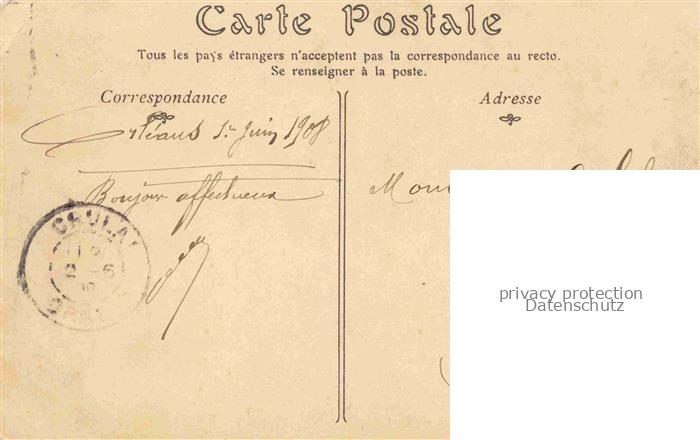 Carte Postale
Tous les pays étrangers n'acceptent pas la correspondance au recto.
Se renseigner à la poste.
Correspondance
Adresse
Orléans 1er Juin 1908
Bonjour affectueux
privacy protection
Datenschutz